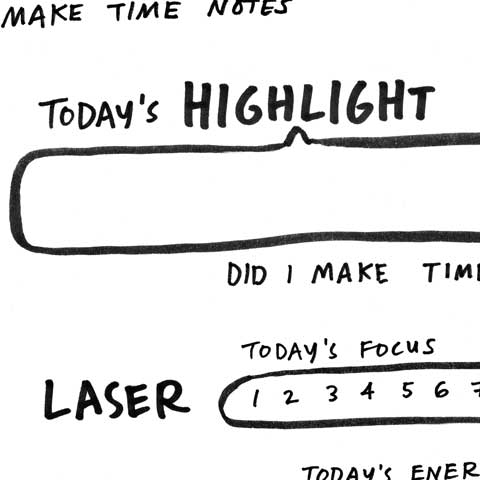 MAKE TIME NOTES
TODAY'S HIGHLIGHT
DID I MAKE
TODAY'S FOCUS
LASER 1 2 3 4 5 6 7
TODAY'S